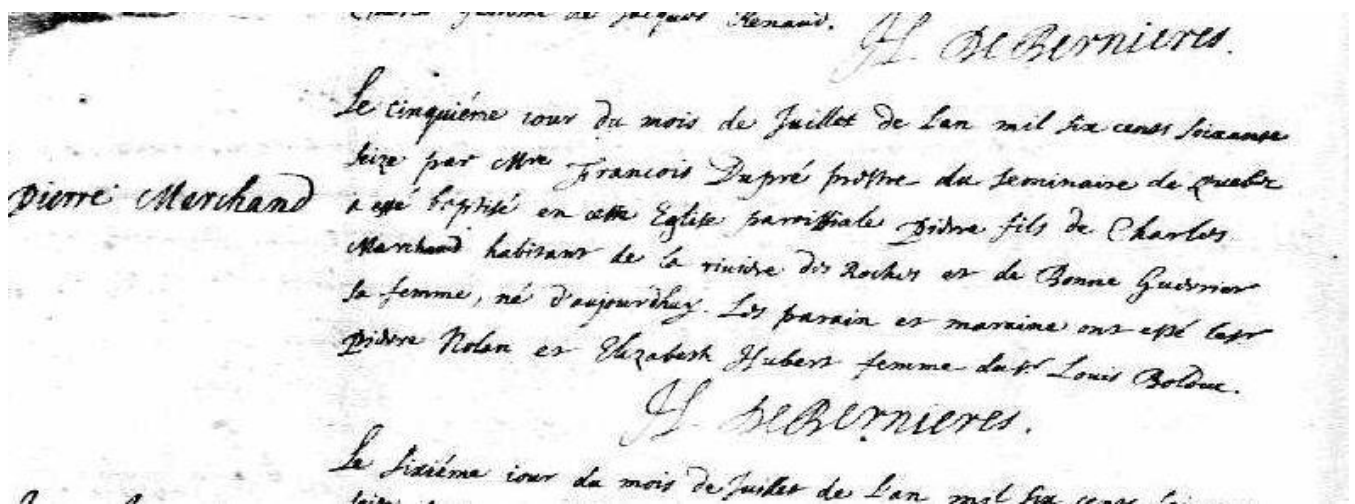 de Jacques Renaud.
H. DeBernieres.
Le cinquiéme iour du mois de Juillet de L'an mil six cents soixante
seize par Mre Francois Dupré prestre du seminaire de Quebec
Pierre Marchand
a esté baptisé en cette Eglise paroissiale Pierre fils de Charles
Marchand habitant de la riuiere des Roches et de Bonne Guerrier
sa femme, né d'aujourdhuy. Les parain et maraine ont esté
Pierre Nolan et Elizabeth Hubert femme du Sr Louis Bolduc.
H. DeBernieres.
Le sixiéme iour du mois de Juillet de L'an mil six cents